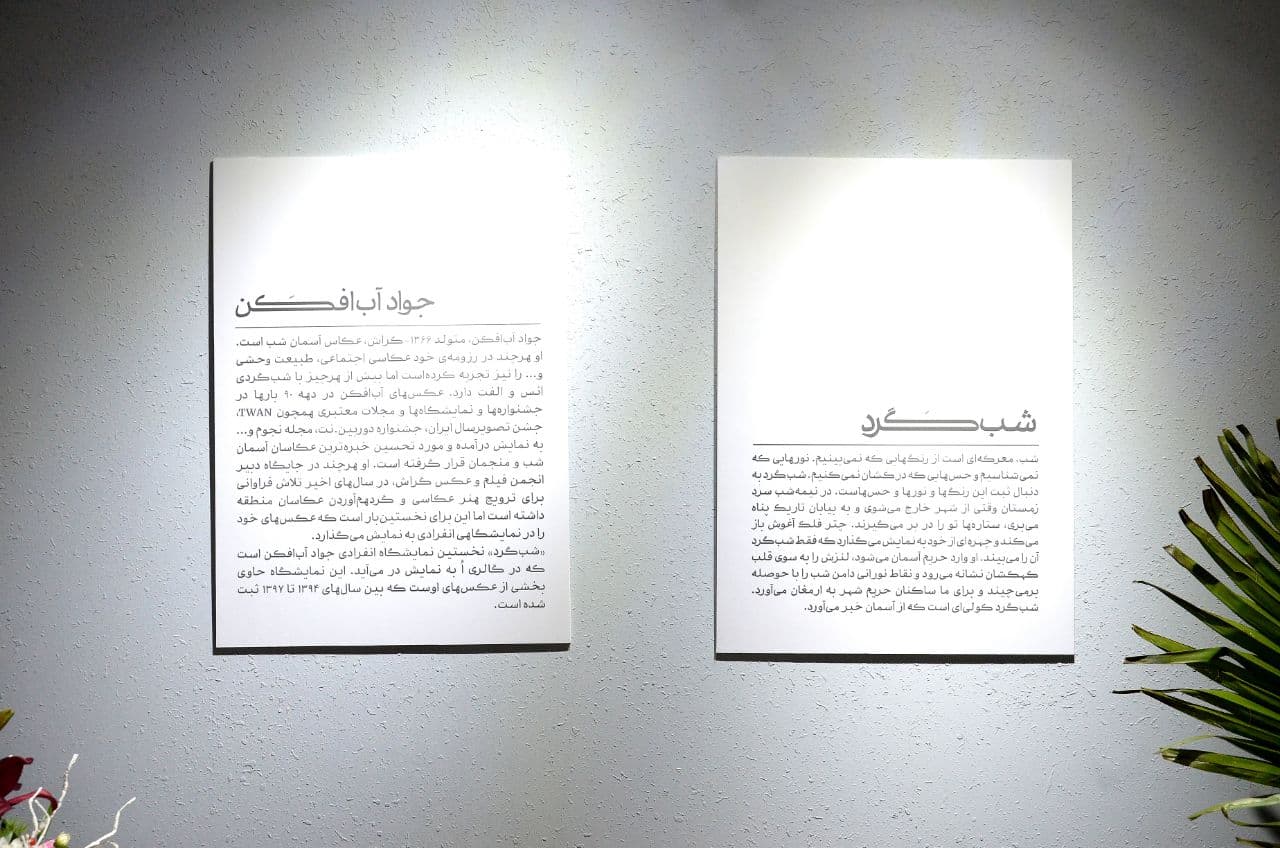 شب‌گَرد
شب، معرکه‌ای است از رنگهایی که نمی‌بینیم. نورهایی که
نمی‌شناسیم و حس‌هایی که درکشان نمی‌کنیم. شب‌گرد به
دنبال ثبت این رنگها و نورها و حس‌هاست. در نیمه‌شب سرد
زمستان وقتی از شهر خارج می‌شوی و به بیابان تاریک پناه
می‌بری، ستاره‌ها تو را در بر می‌گیرند. چتر فلک آغوش باز
می‌کند و چهره‌ای از خود به نمایش می‌گذارد که فقط شب‌گرد
آن را می‌بیند. او وارد حریم آسمان می‌شود، لنزش را به سوی قلب
کهکشان نشانه می‌رود و نقاط نورانی دامن شب را با حوصله
برمی‌چیند و برای ما ساکنان حریم شهر به ارمغان می‌آورد.
شب‌گرد کولی‌ای است که از آسمان خبر می‌آورد.
جواد آب‌افکَن
جواد آب‌افکن، متولد ۱۳۶۶- گراش، عکاس آسمان شب است.
او هرچند در رزومه‌ی خود عکاسی اجتماعی، طبیعت وحشی
و... را نیز تجربه کرده‌است اما بیش از هرچیز با شب‌گردی
انس و الفت دارد. عکس‌های آب‌افکن در دهه ۹۰ بارها در
جشنواره‌ها و نمایشگاه‌ها و مجلات معتبری همچون TWAN،
جشن تصویرسال ایران، جشنواره دوربین.نت، مجله نجوم و...
به نمایش درآمده و مورد تحسین خبره‌ترین عکاسان آسمان
شب و منجمان قرار گرفته است. او هرچند در جایگاه دبیر
انجمن فیلم و عکس گراش، در سال‌های اخیر تلاش فراوانی
برای ترویج هنر عکاسی و گردهم‌آوردن عکاسان منطقه
داشته است اما این برای نخستین‌بار است که عکس‌های خود
را در نمایشگاهی انفرادی به نمایش می‌گذارد.
«شب‌گرد» نخستین نمایشگاه انفرادی جواد آب‌افکن است
که در گالری أ به نمایش در می‌آید. این نمایشگاه حاوی
بخشی از عکس‌های اوست که بین سال‌های ۱۳۹۴ تا ۱۳۹۷ ثبت
شده است.